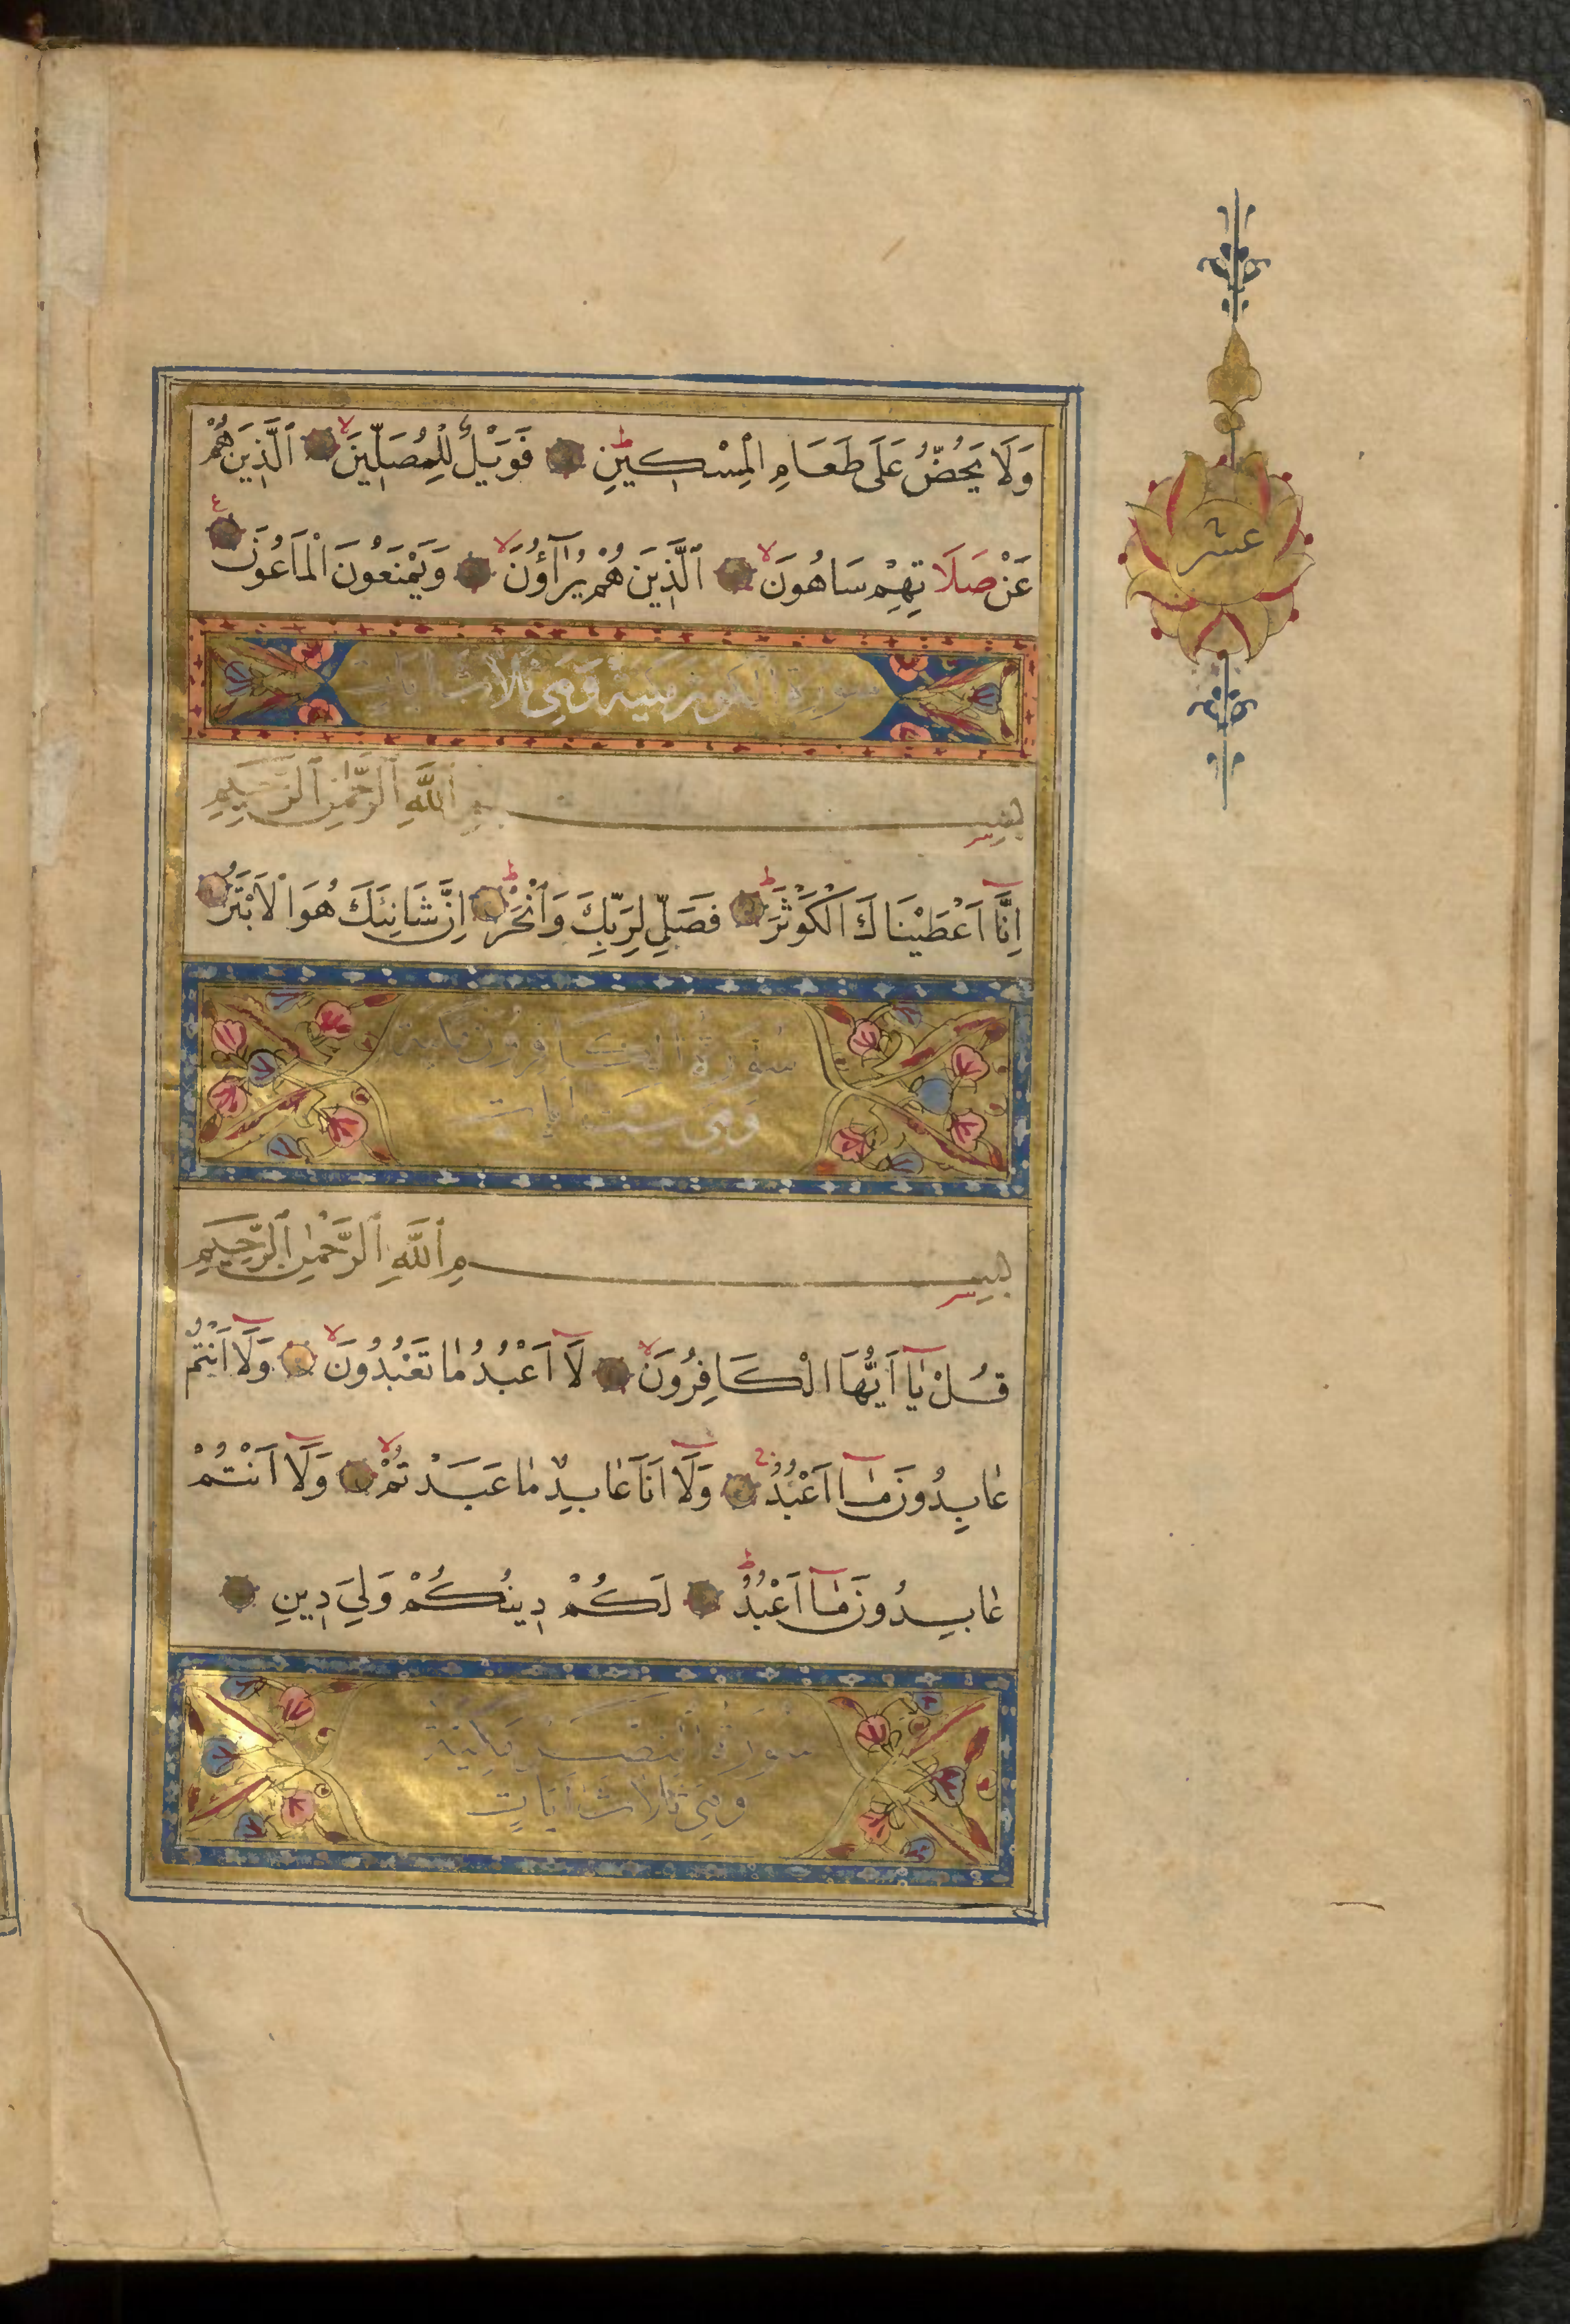 وَلَا يَحُضُّ عَلَى طَعَامِ الْمِسْكِينِ فَوَيْلٌ لِلْمُصَلِّينَ ٱلَّذِينَ هُمْ
عَنْ صَلَاتِهِمْ سَاهُونَ ٱلَّذِينَ هُمْ يُرَاۤؤُنَ وَيَمْنَعُونَ الْمَاعُونَ
سورة الكوثر مكية وهي ثلاث ايات
بِسْمِ ٱللَّهِ ٱلرَّحْمٰنِ ٱلرَّحِيمِ
اِنَّا اَعْطَيْنَاكَ الْكَوْثَرَ فَصَلِّ لِرَبِّكَ وَٱنْحَرْ اِنَّ شَانِئَكَ هُوَ الْاَبْتَرُ
سُورَةُ الكَافِرُونَ مكية
وَهِيَ سِتّ اٰيات
بِسْمِ ٱللَّهِ ٱلرَّحْمٰنِ ٱلرَّحِيمِ
قُلْ يٰۤا اَيُّهَا الْكَافِرُونَ لَاۤ اَعْبُدُ مٰا تَعْبُدُونَ وَلَاۤ اَنْتُمْ
عٰابِدُونَ مٰۤا اَعْبُدُ وَلَاۤ اَنَا۠ عٰابِدٌ مٰا عَبَدْتُمْ وَلَاۤ اَنْتُمْ
عٰابِدُونَ مٰۤا اَعْبُدُ لَكُمْ دِينُكُمْ وَلِيَ دِينِ
سُورَة النصر مكية
وَهِيَ ثَلَاثُ آيَاتٍ
عشر